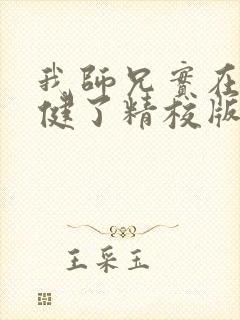 我師兄實在
健了精校版
王采玉